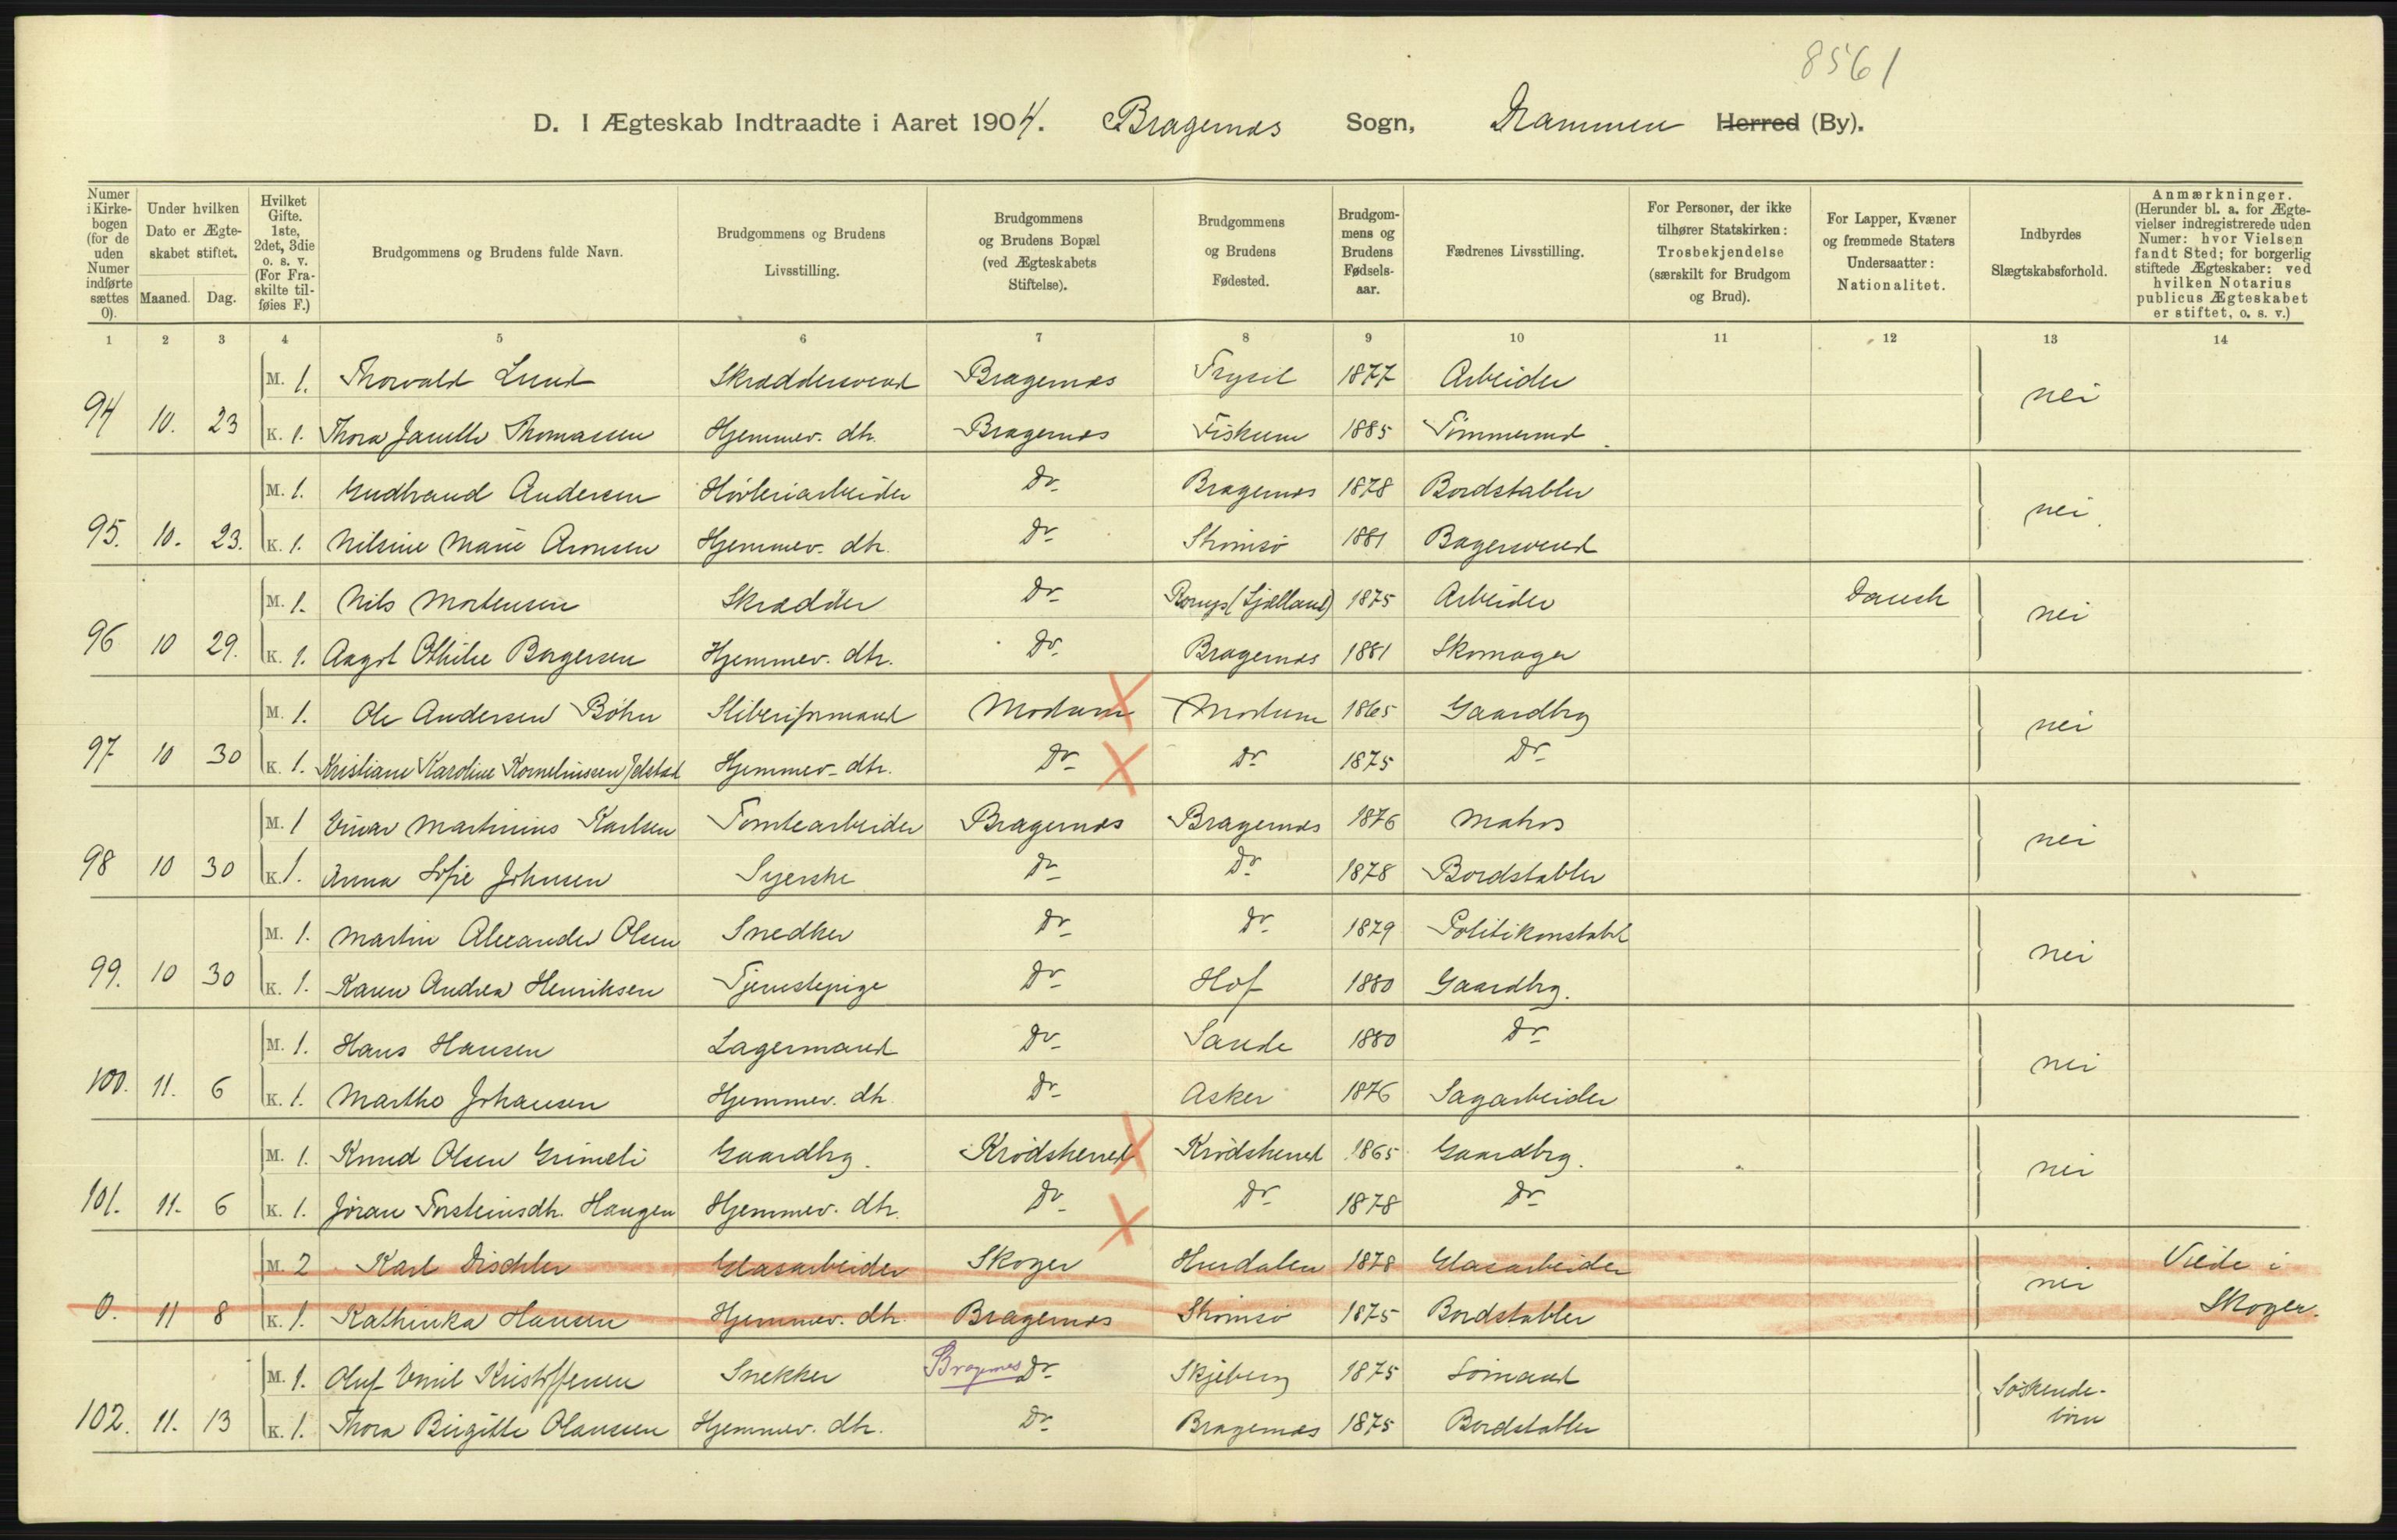 8561
D. I Ægteskab Indtraadte i Aaret 1904. Bragernæs Sogn, Drammen Herred (By).
Numer i Kirkebogen (for de uden Numer indførte sættes 0).
Under hvilken Dato er Ægteskabet stiftet.
Maaned. Dag.
Hvilket Gifte. 1ste, 2det, 3die o. s. v. (For Fraskilte tilføies F.)
Brudgommens og Brudens fulde Navn.
Brudgommens og Brudens Livsstilling.
Brudgommens og Brudens Bopæl (ved Ægteskabets Stiftelse).
Brudgommens og Brudens Fødested.
Brudgommens og Brudens Fødselsaar.
Fædrenes Livsstilling.
For Personer, der ikke tilhører Statskirken: Trosbekjendelse (særskilt for Brudgom og Brud).
For Lapper, Kvæner og fremmede Staters Undersaatter: Nationalitet.
Indbyrdes Slægtskabsforhold.
Anmærkninger. (Herunder bl. a. for Ægtevielser indregistrerede uden Numer: hvor Vielsen fandt Sted; for borgerlig stiftede Ægteskaber: ved hvilken Notarius publicus Ægteskabet er stiftet, o. s. v.)
1 2 3 4 5 6 7 8 9 10 11 12 13 14
M. 1. Thorvald Lund Skræddersvend Bragernæs Trysil 1877 Arbeider nei
94 10. 23 K. 1. Thora Janette Thomassen Hjemmev. dtr. Bragernæs Fiskum 1885 Tømmermd.
M. 1. Gudbrand Andersen Høvleriarbeider Do Bragernæs 1878 Bordstabler nei
95. 10. 23. K. 1. Nilsine Marie Aronsen Hjemmev. dtr. Do Strømsø 1881 Bagersvend
M. 1. Nils Mortensen Skrædder Do (Sjælland) 1875 Arbeider Dansk nei
96 10 29. K. 1. Aagot Othilie Borgersen Hjemmev. dtr. Do Bragernæs 1881 Skomager
M. 1. Ole Andersen Bøhn Sliberiformand Modum Modum 1865 Gaardbrg nei
97 10 30 K. 1. Kristiane Karoline Korneliussen Jelstad Hjemmev. dtr. Do Do 1875 Do
M. 1 Einar Martinius Karlsen Tomtearbeider Bragernæs Bragernæs 1876 Matros nei
98 10 30 K. 1. Anna Sofie Johnsen Syerske Do Do 1878 Bordstabler
M. 1. Martin Alexander Olsen Snedker Do Do 1879 Politikonstabel nei
99. 10 30 K. 1. Karen Andrea Henriksen Tjenestepige Do Hof 1880 Gaardbrg.
M. 1. Hans Hansen Lagermand Do Sande 1880 Do nei
100. 11. 6 K. 1. Martha Johansen Hjemmev. dtr. Do Asker 1876 Sagarbeider
M. 1. Knud Olsen Grimeli Gaardbrg. Krødsherred Krødsherred 1865 Gaardbrg. nei
101. 11. 6 K. 1. Jøran Torsteinsdtr. Haugen Hjemmev. dtr. Do Do 1878 Do
M. 2 Karl Dischler Glasarbeider Skoger Hurdalen 1878 Glasarbeider nei Viede i
0. 11 8 K. 1. Kathinka Hansen Hjemmev. dtr. Bragernæs Strømsø 1875 Bordstabler Skoger.
M. 1. Oluf Emil Kristoffersen Snekker Bragernes Do Skjeberg 1875 Sømand Søskende-
102. 11. 13 K. 1. Thora Birgitte Olaussen Hjemmev. dtr. Do Bragernæs 1875 Bordstabler børn